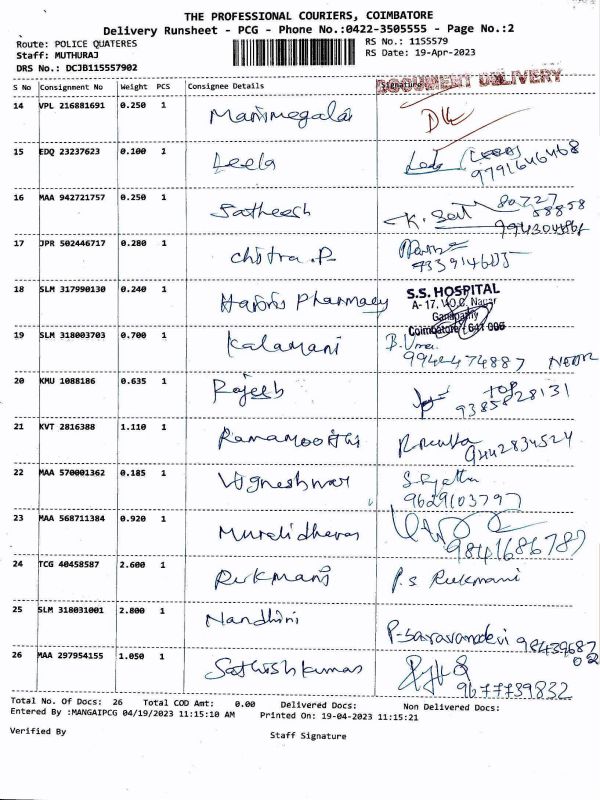 THE PROFESSIONAL COURIERS, COIMBATORE
Delivery Runsheet - PCG - Phone No.:0422-3505555 - Page No.:2
Route: POLICE QUATERES RS No.: 1155579
Staff: MUTHURAJ RS Date: 19-Apr-2023
DRS No.: DCJB115557902
DOCUMENT DELIVERY
S No Consignment No Weight PCS Consignee Details Signature
14 VPL 216881691 0.250 1 Manimegalai
15 EDQ 23237623 0.100 1 Leela 9791646468
16 MAA 942721757 0.250 1 Satheesh K.
17 JPR 502446717 0.280 1 Chitra .P
18 SLM 317990130 0.240 1 Pharmacy S.S. HOSPITAL
A- 17, V.O.C. Nagar
Ganapathy
Coimbatore - 641 006
19 SLM 318003703 0.700 1 Kalamani B.Uma
20 KMU 1088186 0.635 1 Rajesh
9385828131
21 KVT 2816388 1.110 1 Ramamoorthi 9442834524
22 MAA 570001362 0.185 1 Vigneshwar
9629103797
23 MAA 568711384 0.920 1 Muralidharan
9841686787
24 TCG 40458587 2.600 1 Rukmani P.S Rukmani
25 SLM 318031001 2.800 1 Nandhini
P-Saravanadevi 98439687
02
26 MAA 297954155 1.050 1 Sathishkumar
9677739832
Total No. Of Docs: 26 Total COD Amt: 0.00 Delivered Docs: Non Delivered Docs:
Entered By :MANGAIPCG 04/19/2023 11:15:10 AM Printed On: 19-04-2023 11:15:21
Verified By Staff Signature